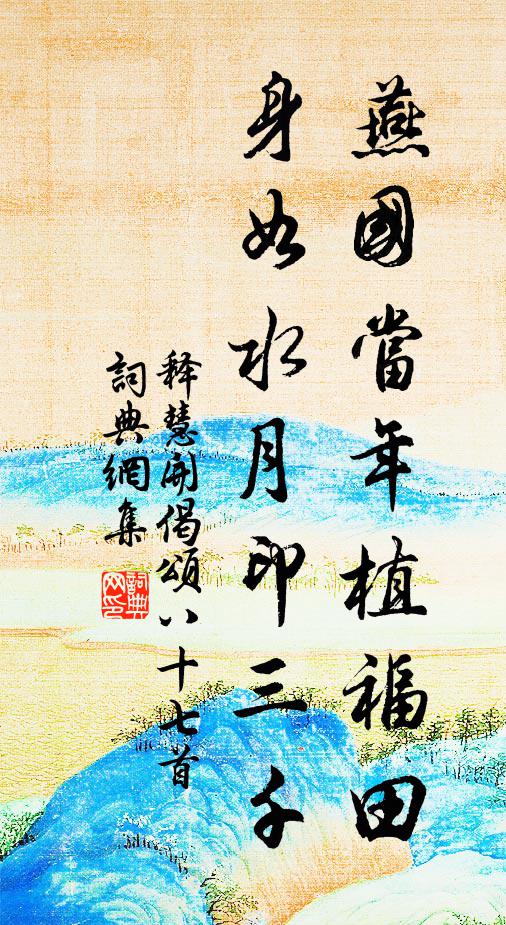 燕國當年植福田
身如水月印三千
释慧開偈頌八十七首
詞典網集
詞典
网印